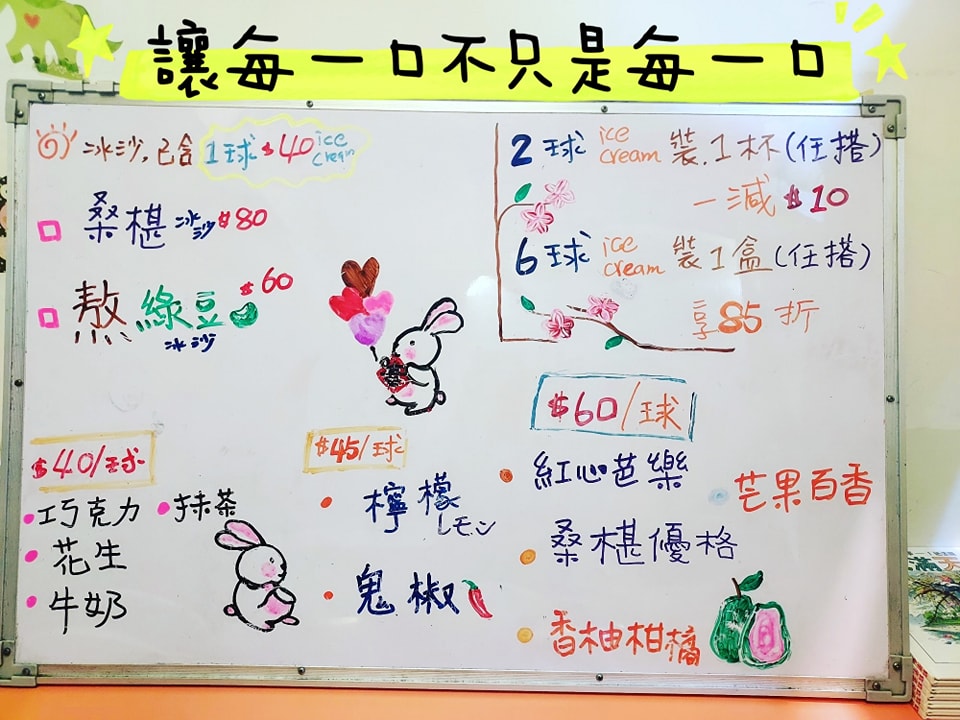 讓每一口不只是每一口
冰沙,已含1球$40 ice cream
桑椹冰沙$80
熬綠豆冰沙$60
2球 ice cream 裝1杯(任搭)
一減$10
6球 ice cream 裝1盒(任搭)
享85折
$40/球
巧克力
抹茶
花生
牛奶
$45/球
檸檬
レモン
鬼椒
$60/球
紅心芭樂
芒果百香
桑椹優格
香柚柑橘